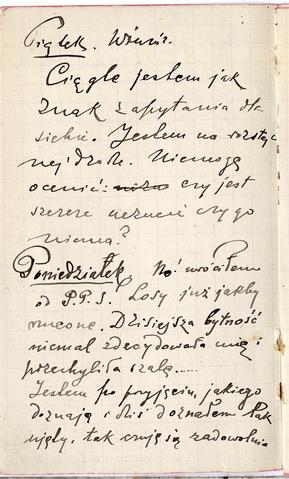 Piątek. Wtorek.
Ciągle jestem jak
znak zapytania dla
siebie. Jestem na rozstaj
nej drodze. Nie mogę
ocenić: czy jest
szczere uczucie czy go
niema?
Poniedziałek. wróciłem
od P.P.S. Losy już jakby
rzucone. Dzisiejsza bytność
niemal zdecydowała mną i
przechyliła szalę.....
Jestem po przyjęciu, jakiego
doznają i dziś doznałem tak
ujęty, tak czuję się zadowolnio